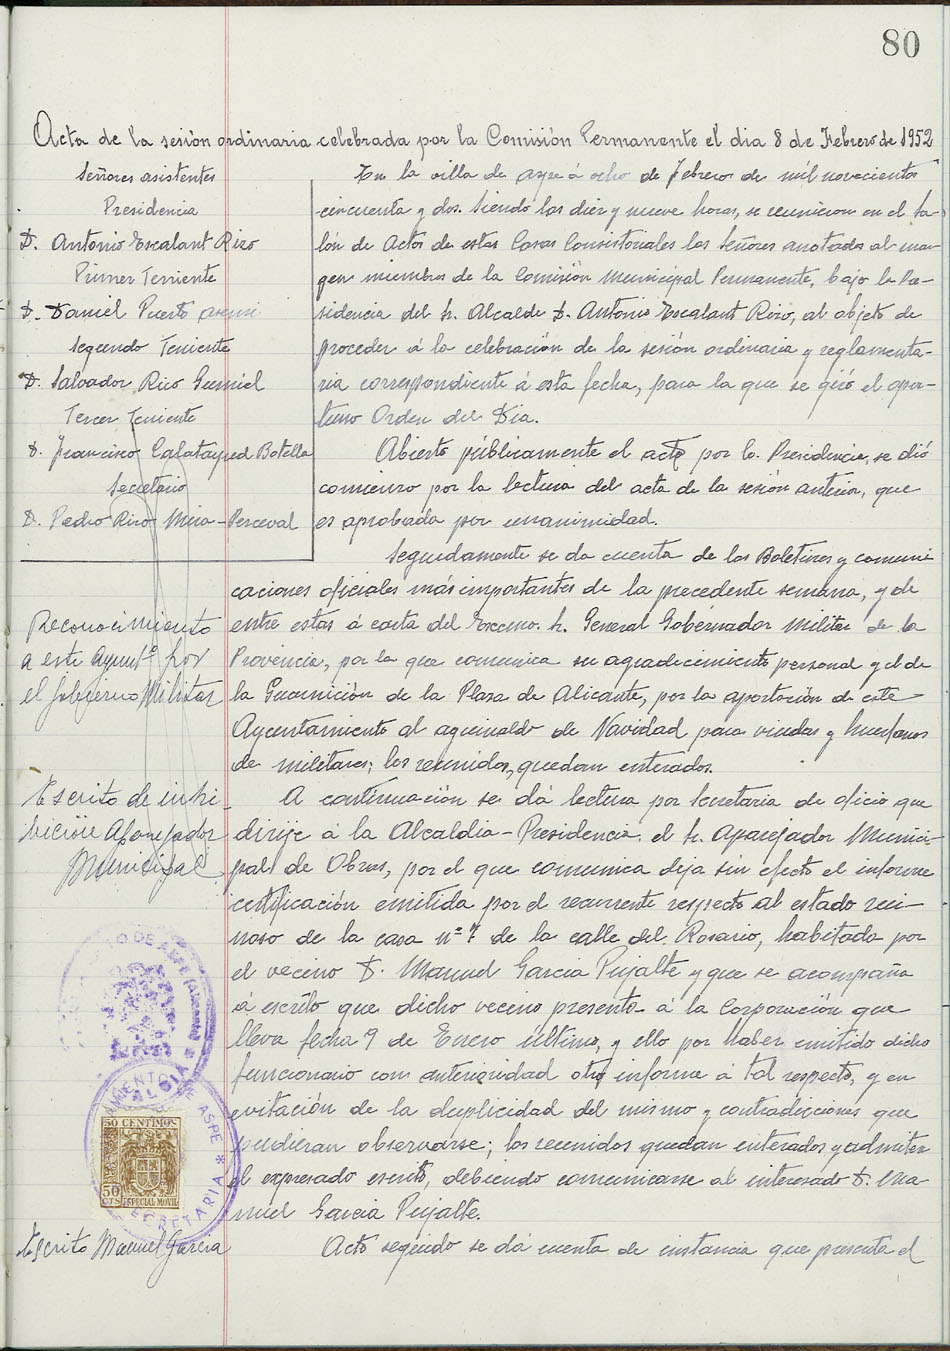 80
Acta de la sesión ordinaria celebrada por la Comisión Permanente el dia 8 de Febrero de 1952
Señores asistentes
Presidencia
D. Antonio Escalant Rizo
Primer Teniente
D. Daniel Puerto Asensi
Segundo Teniente
D. Salvador Rico Gumiel
Tercer Teniente
D. Francisco Calatayud Botella
Secretario
D. Pedro Rizo Mira-Perceval
En la villa de Aspe á ocho de Febrero de mil novecientos
cincuenta y dos. Siendo las diez y nueve horas, se reunieron en el Sa-
lón de Actos de estas Casas Consistoriales los Señores anotados al mar-
gen miembros de la Comisión Municipal Permanente, bajo la Pre-
sidencia del Sr. Alcalde D. Antonio Escalant Rizo, al objeto de
proceder á la celebración de la sesión ordinaria y reglamenta-
ria correspondiente á esta fecha, para la que se giró el opor-
tuno Orden del Dia.
Abierto públicamente el acto por la Presidencia, se dió
comienzo por la lectura del acta de la sesión anterior, que
es aprobada por unanimidad.
Seguidamente se da cuenta de los Boletines y comuni
caciones oficiales más importantes de la precedente semana, y de
entre estas á carta del Excmo. Sr. General Gobernador Militar de la
Provincia, por la que comunica su agradecimiento personal y el de
la Guarnición de la Plaza de Alicante, por la aportación de este
Ayuntamiento al aguinaldo de Navidad para viudas y huerfanos
de militares; los reunidos, quedan enterados.
Reconocimiento
a este Ayuntº por
el Gobierno Militar
A continuación se dá lectura por Secretaria de oficio que
dirije á la Alcaldia-Presidencia el Sr. Aparejador Munici-
pal de Obras, por el que comunica deja sin efecto el informe
certificación emitida por el recurrente respecto al estado rui-
noso de la casa nº 7 de la calle del Rosario, habitada por
el vecino D. Manuel Garcia Pujalte y que se acompaña
a escrito que dicho vecino presenta á la Corporación que
lleva fecha 9 de Enero último, y ello por haber emitido dicho
funcionario con anterioridad otro informe á tal respecto, y en
evitación de la duplicidad del mismo y contradicciones que
pudieran observarse; los reunidos quedan enterados y admiten
el expresado escrito, debiendo comunicarse al interesado D. Ma-
nuel Garcia Pujalte.
Escrito de inhi-
bición Aparejador
Municipal
Acto seguido se dá cuenta de instancia que presenta el
Escrito Manuel Garcia
TO DE ASPE (Alicante)
ALCALDIA
AMIENTO DE ASPE *
SECRETARIA
50 CENTIMOS
50
CTS
ESPECIAL MOVIL